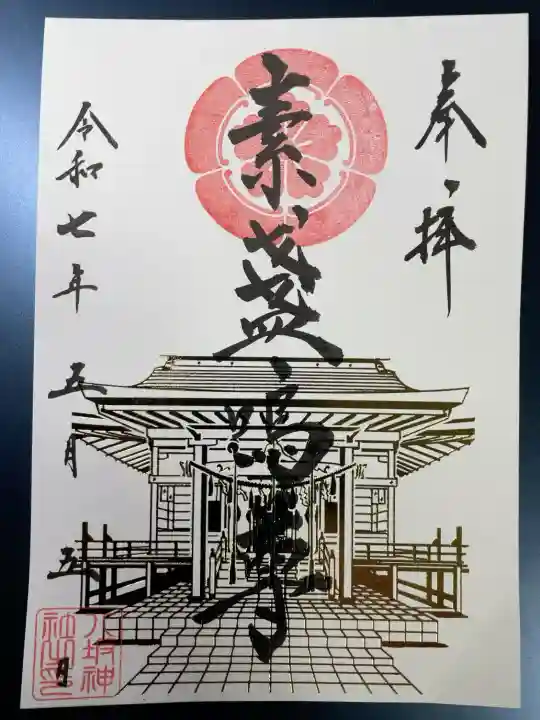 奉拝
素盞嗚尊
令和七年五月五日
八坂神
社之印